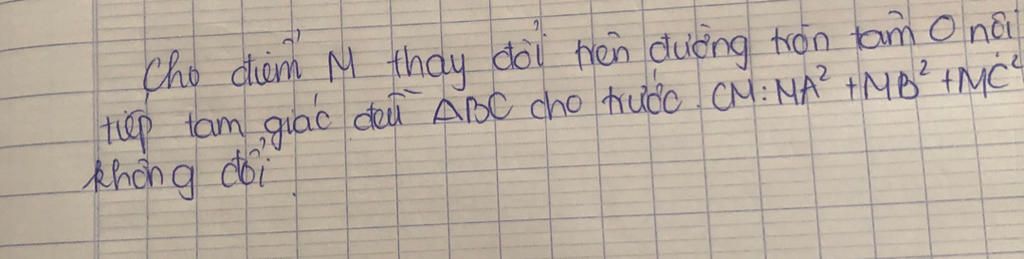 Cho điểm M thay đổi trên đường tròn tâm O nội
tiếp tam giác đều ABC cho trước. CM: MA² + MB² + MC²
không đổi.